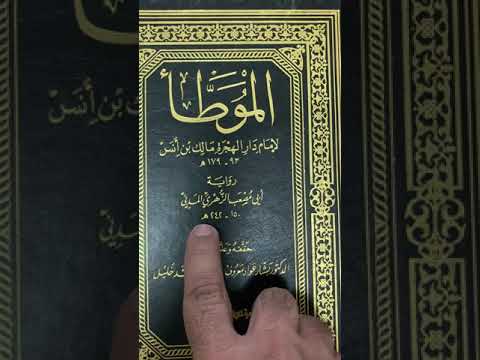 الموطَّأ
لإمَام دَار الهِجْرَة مَالِك بْن أَنَسْ
٩٣ - ١٧٩ هـ
رواية
أبي مُصْعَب الزُّهْرِيِّ المَدَنِيِّ
١٥٠ - ٢٤٢ هـ
حَقَّقَهُ
الدكتور بَشَّار عَوَّاد مَعْرُوف خَلِيل